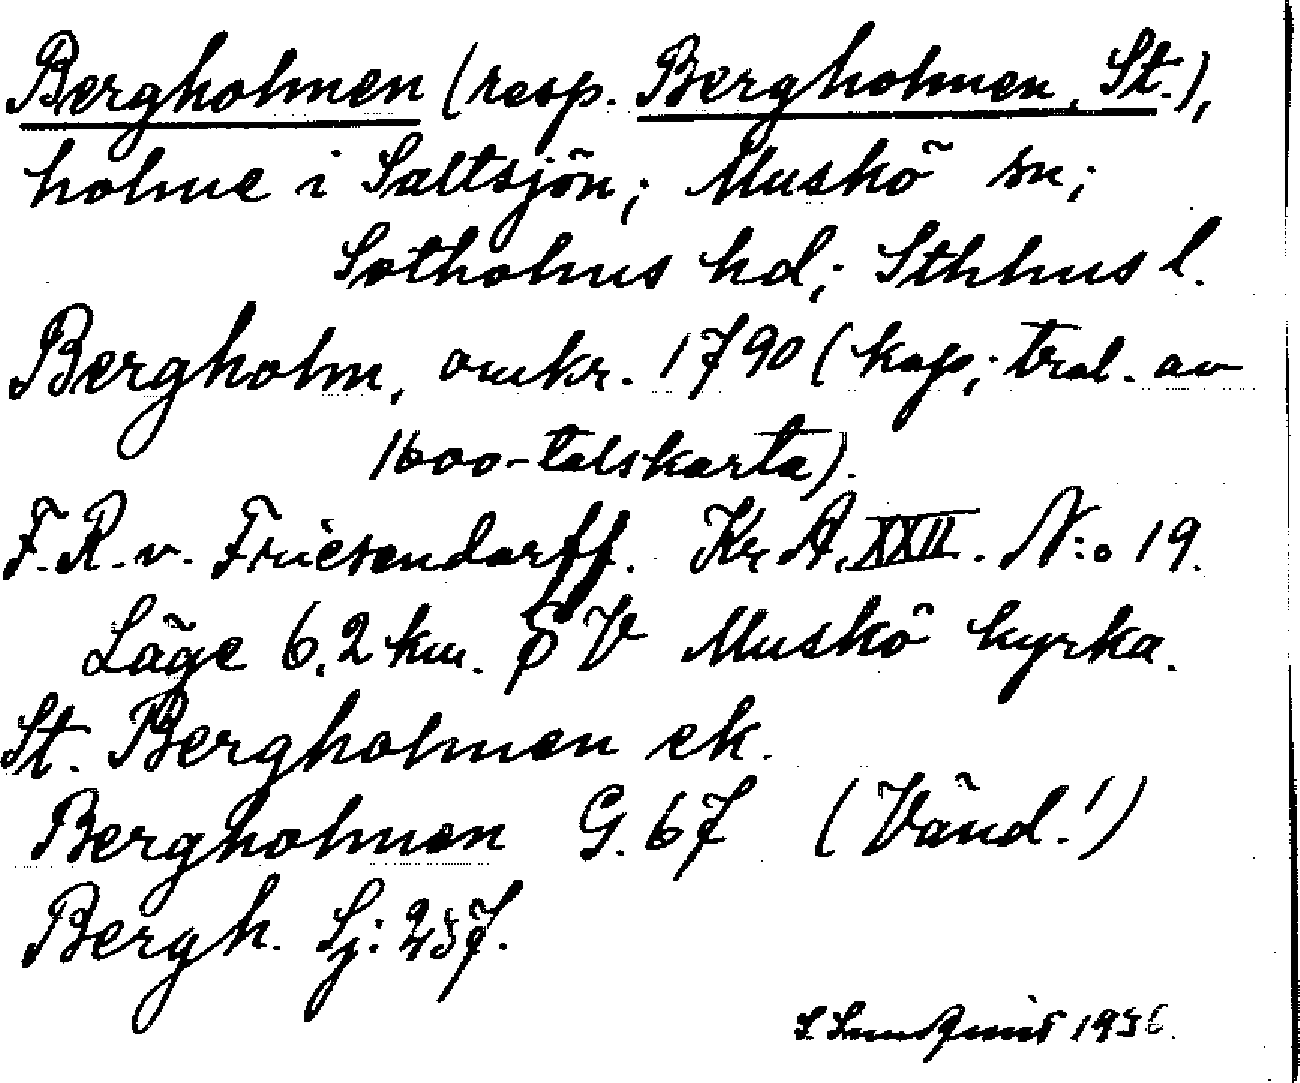 Bergholmen (resp. Bergholmen, St.),
holme i Saltsjön; Muskö sn;
Sotholms hd; Sthlms l.
Bergholm, omkr. 1790 (kop; trol. av
1600-talskarta).
F. R. v. Friesendorff. Kr. A. XXII. N:o 19.
Läge 6,2 km. V Muskö kyrka.
St. Bergholmen ek.
Bergholmen G. 67 (Vänd!)
Bergh. Sj: 257.
S. Lundqvist 1936.